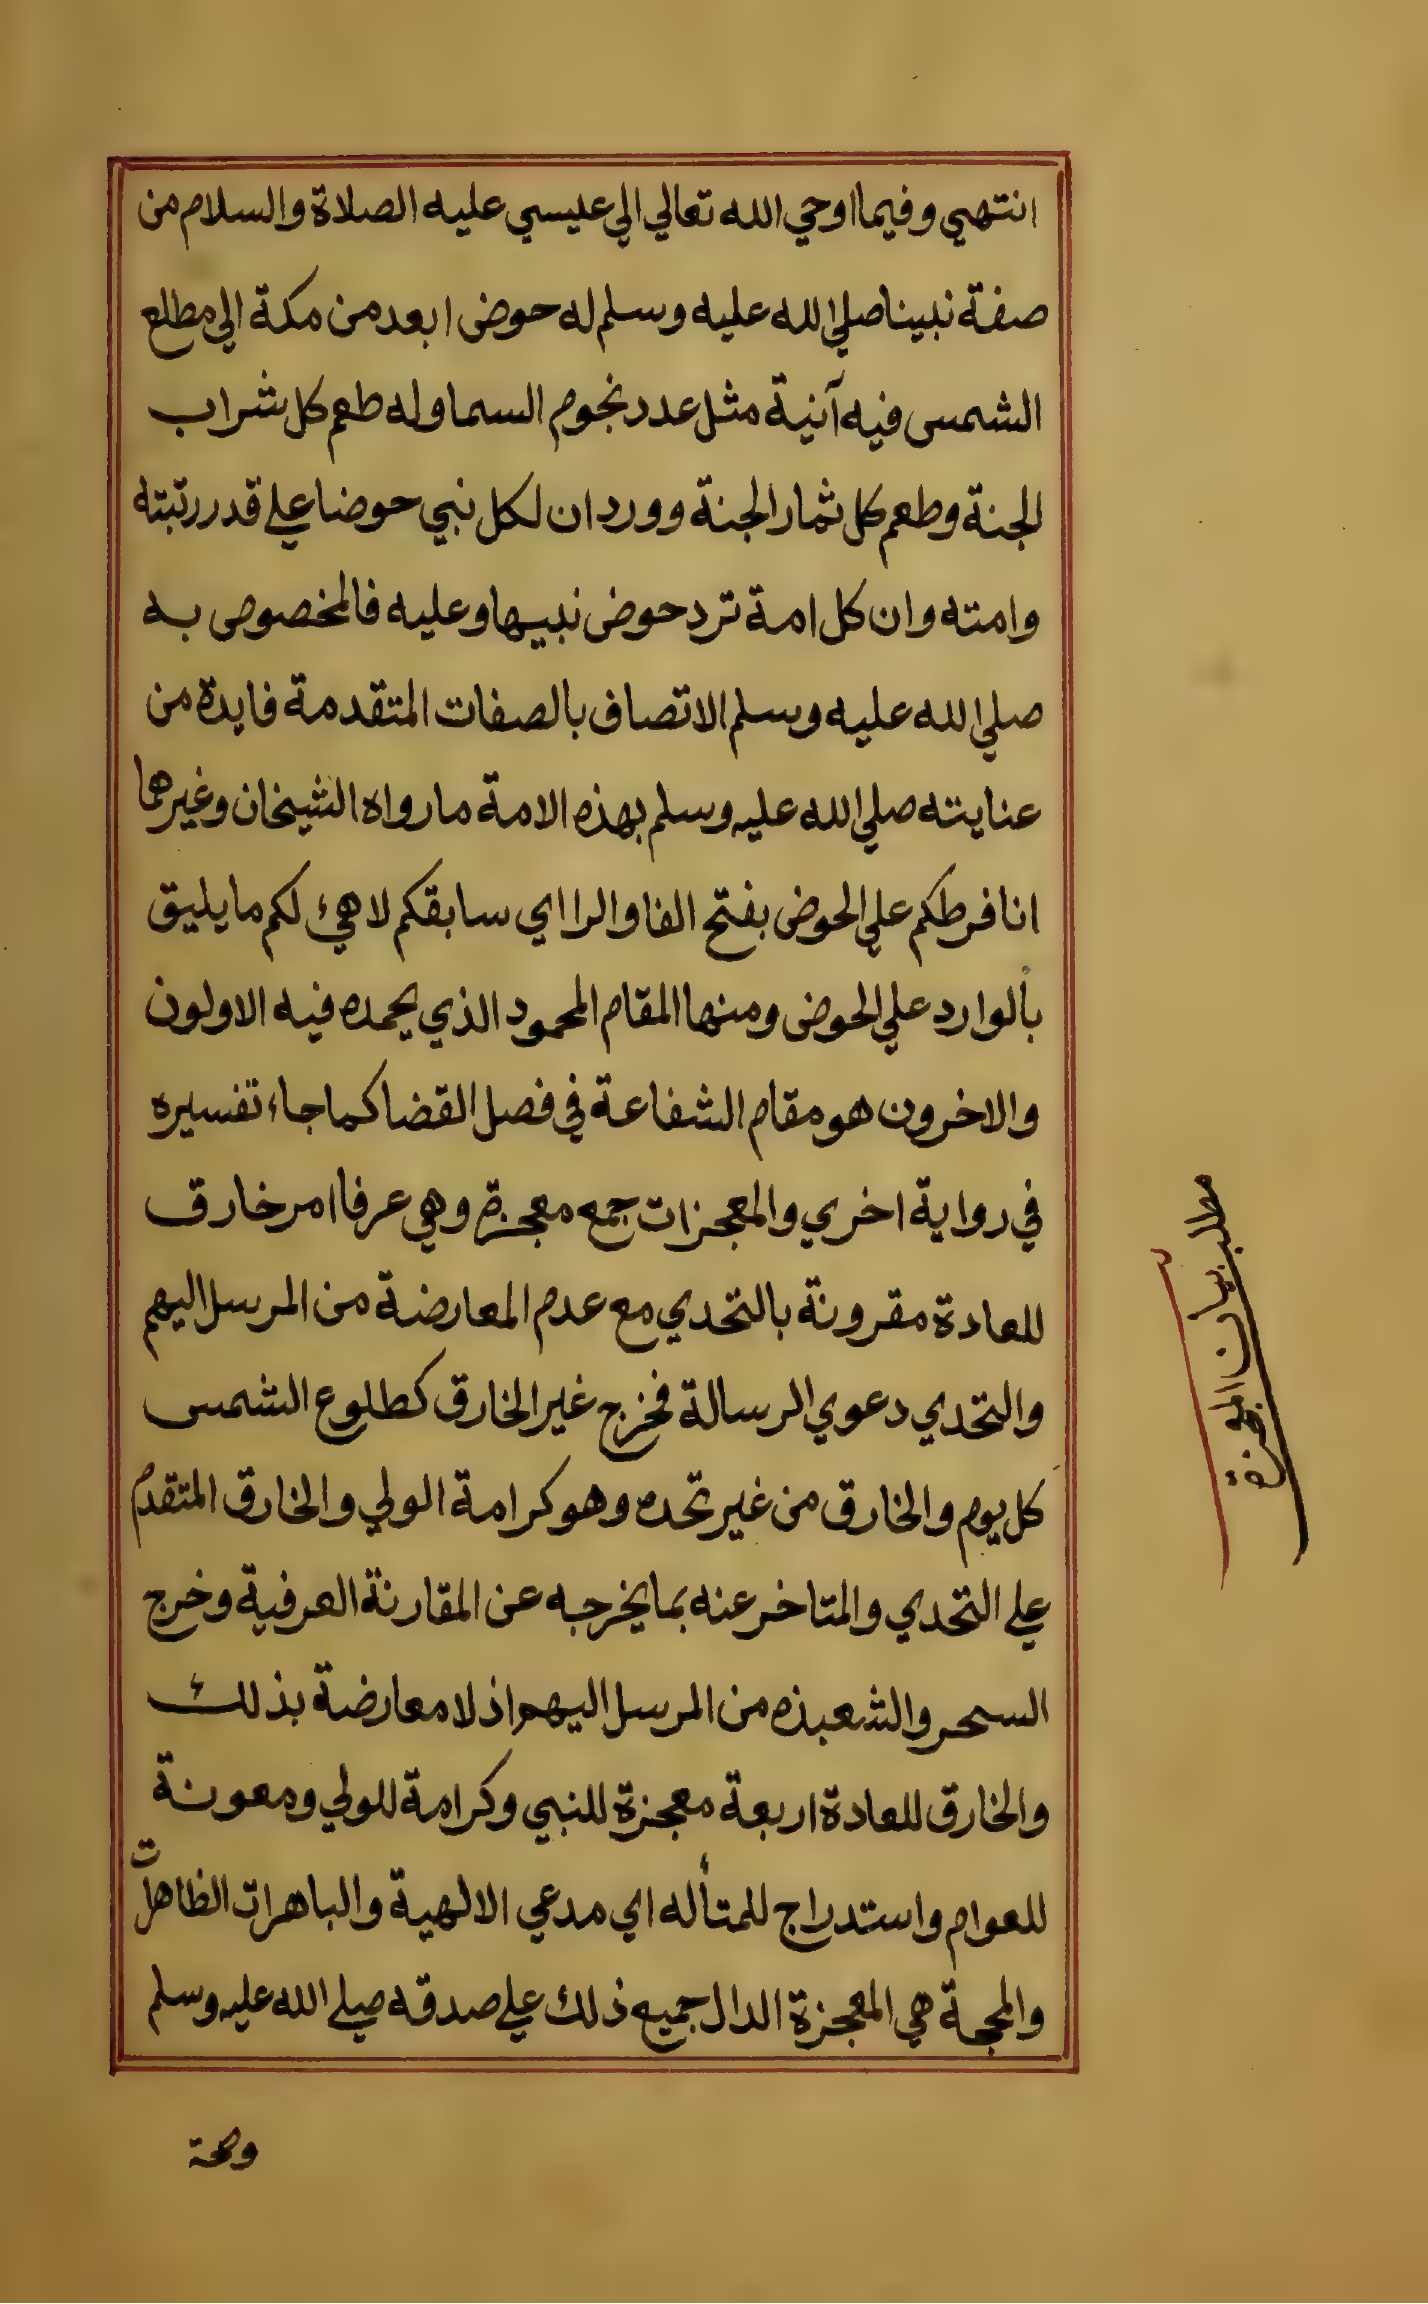 انتهي وفيما اوحي الله تعالي الي عليسي عليه الصلاة والسلام من
صفة نبينا صلي الله عليه وسلم له حوض ابعد من مكة الي مطلع
الشمس فيه آنية مثل عدد نجوم السما وله طعم كل شراب
الجنة وطعم كل ثمار الجنة وورد ان لكل نبي حوضا علي قدر رتبته
وامته وان كل امة ترد حوض نبيها وعليه فالمخصوص به
صلي الله عليه وسلم الاتصاف بالصفات المتقدمة فايدة من
عنايته صلي الله عليه وسلم بهذه الامة ما رواه الشيخان وغيرهما
انا فرطكم علي الحوض بفتح الفا والرا اي سابقكم لاهيء لكم ما يليق
بالوارد علي الحوض ومنها المقام المحمود الذي يحمده فيه الاولون
والاخرون هو مقام الشفاعة في فصل القضا كما جاء تفسيره
في رواية اخري والمعجزات جمع معجزة وهي عرفا امر خارق
للعادة مقرونة بالتحدي مع عدم المعارضة من المرسل اليهم
والتحدي دعوي الرسالة فخرج غير الخارق كطلوع الشمس
كل يوم والخارق من غير تحده وهو كرامة الولي والخارق المتقدم
علي التحدي والمتاخر عنه بما يخرجه عن المقارنة العرفية وخرج
السحر والشعبذه من المرسل اليهم اذ لا معارضة بذلك
والخارق للعادة اربعة معجزة للنبي وكرامة للولي ومعونة
للعوام واستدراج للمتأله اي مدعي الالهية والباهرات الظاهرات
والمجحة هي المعجزة الدال جميع ذلك علي صدقه صلي الله عليه وسلم
وصحة
مطلب بيان المعجزة